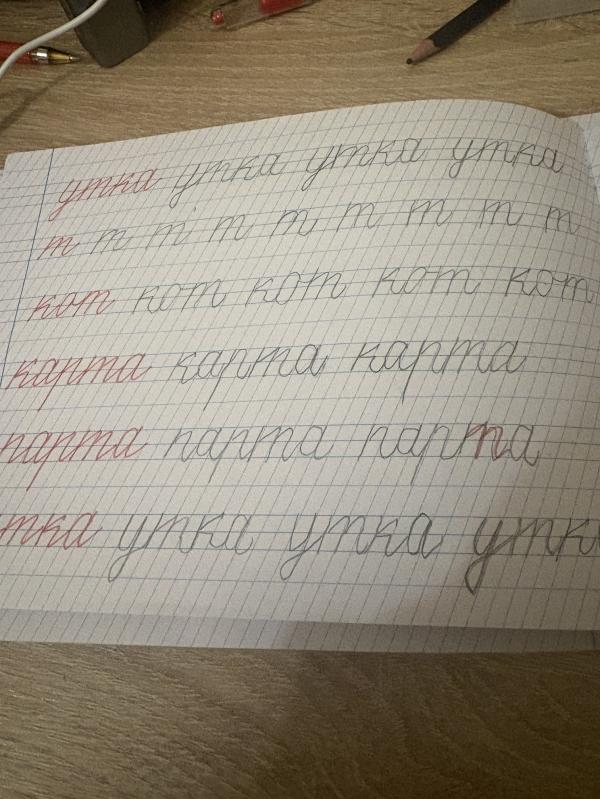 утка утка утка утка
т т т т т т т т т
кот кот кот кот кот
карта карта карта
парта парта парта
утка утка утка утка